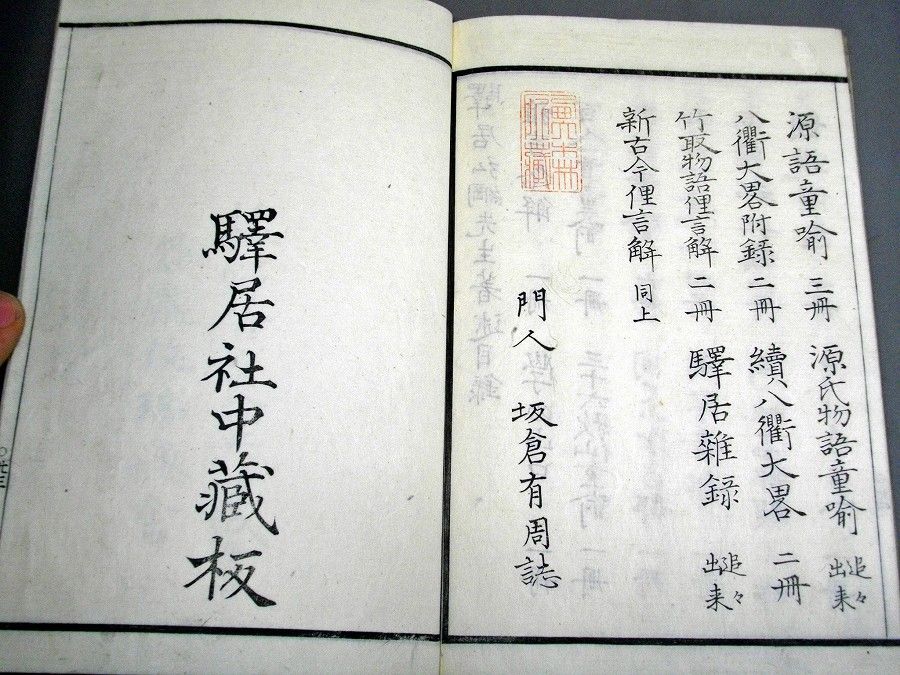 源語童喩 三冊 源氏物語童喩 追々出来
八衢大畧附録 二冊 續八衢大畧 二冊
竹取物語俚言解 二冊 驛居雜録 追々出来
新古今俚言解 同上
門人 坂倉有周誌
驛居社中藏板